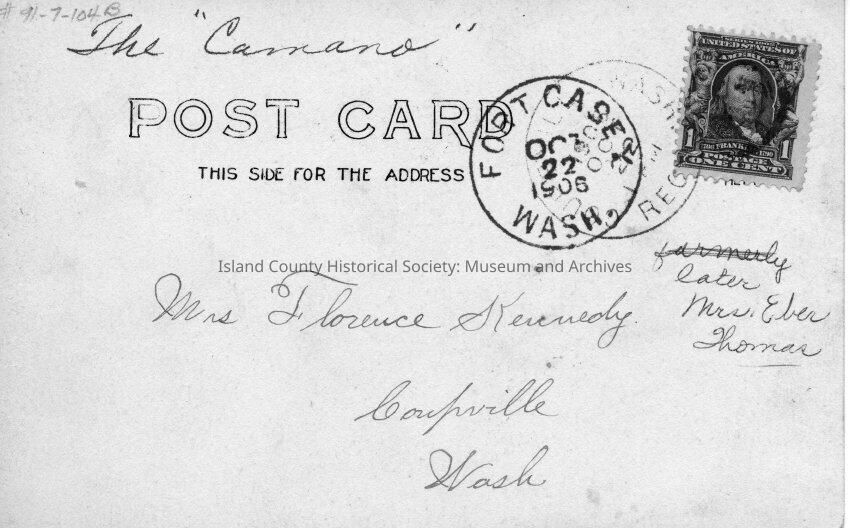 # 91-7-104B
The "Camano"
POST CARD
THIS SIDE FOR THE ADDRESS
FORT CASEY
OCT
22
1906
WASH.
WASH.
REC
SERIES 1902
UNITED STATES OF
AMERICA
1 1
POSTAGE
ONE CENT
Island County Historical Society: Museum and Archives
formerly
later
Mrs. Eber
Thomas
Mrs Florence Kennedy.
Coupville
Wash